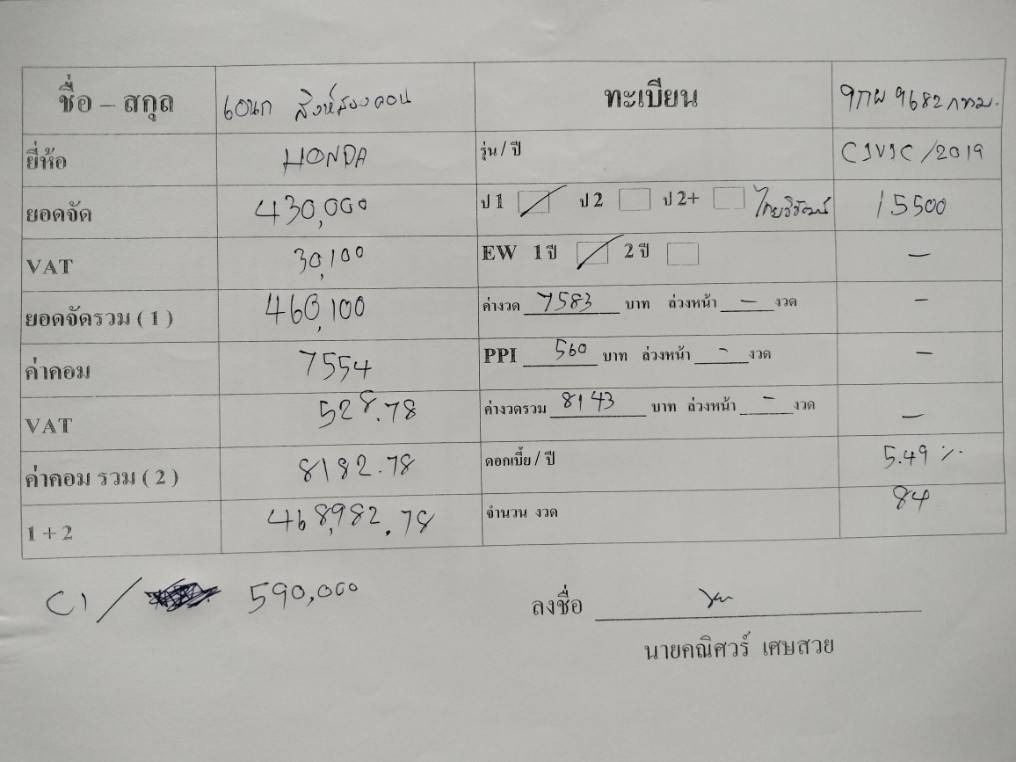 ชื่อ – สกุล เอนก สิงห์สองคอน ทะเบียน 9กผ 9682 กทม.
ยี่ห้อ HONDA รุ่น / ปี CIVIC / 2019
ยอดจัด 430,000 ป 1 ป 2 ป 2+ ไทยวิวัฒน์ 15500
VAT 30,100 EW 1 ปี 2 ปี –
ยอดจัดรวม ( 1 ) 460,100 ค่างวด 7583 บาท ล่วงหน้า – งวด –
ค่าคอม 7554 PPI 560 บาท ล่วงหน้า – งวด –
VAT 528.78 ค่างวดรวม 8143 บาท ล่วงหน้า – งวด –
ค่าคอม รวม ( 2 ) 8182.78 ดอกเบี้ย / ปี 5.49 %
1 + 2 468,982.78 จำนวน งวด 84
C1 / 590,000 ลงชื่อ
นายคณิศวร์ เศษสวย